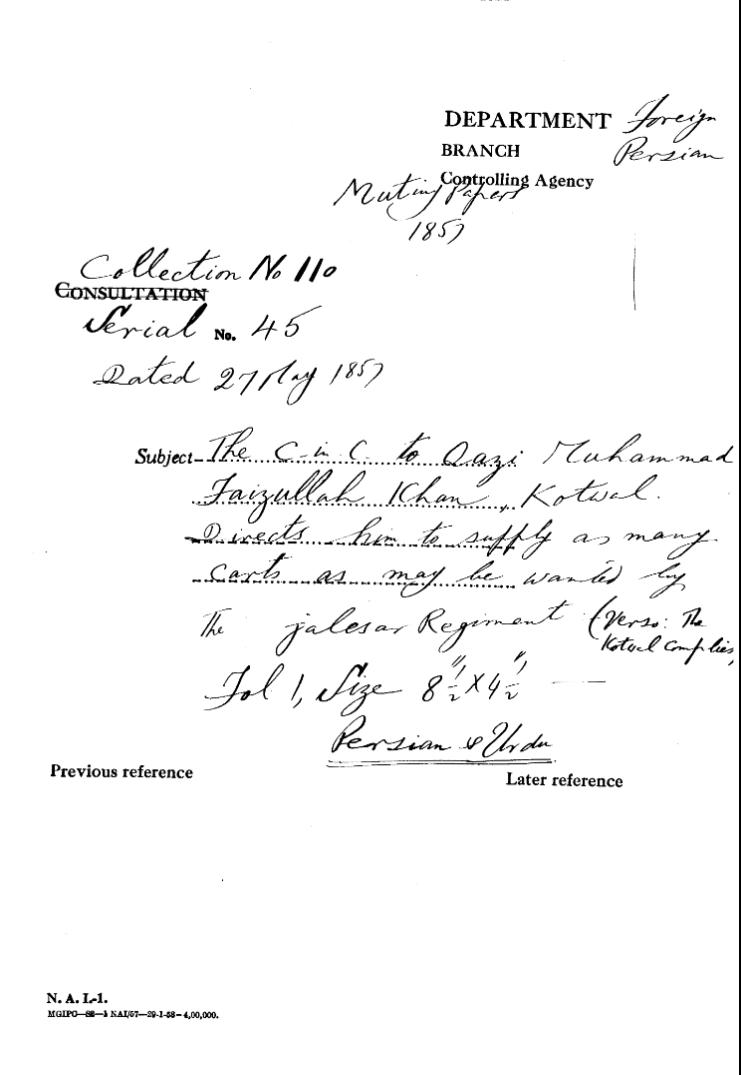 DEPARTMENT Foreign
BRANCH Persian
Controlling Agency
Mutiny Papers
1857
Collection No 110
CONSULTATION
Serial No. 45
Dated 27 May 1857
Subject- The C in C. to Qazi Muhammad
Faizullah Khan, Kotwal.
Directs him to supply as many
carts as may be wanted by
The jalesar Regiment (Verso: The
Kotwal complies,
Fol 1, Size 8½" × 4½"
Persian & Urdu
Previous reference
Later reference
N. A. I.-1.
MGIPC—S2—1 NAI/57—29-1-58—4,00,000.